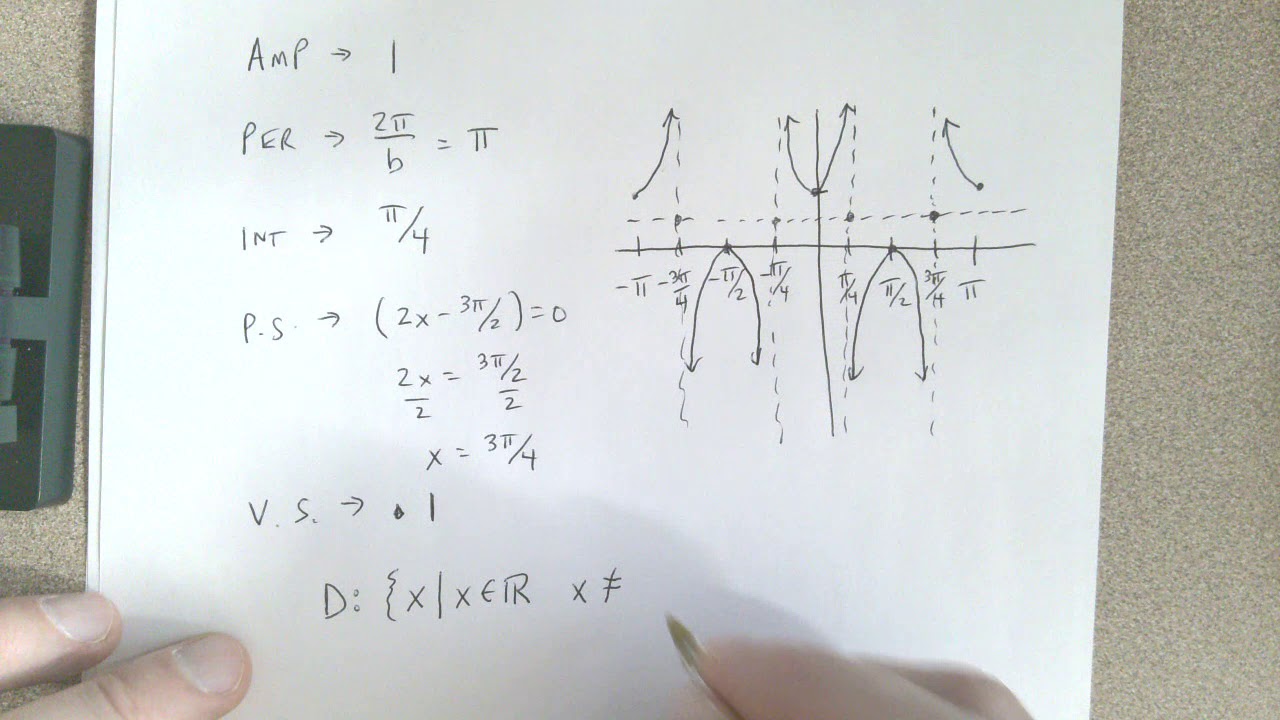 AMP → 1
PER → 2π/b = π
INT → π/4
P.S. → (2x - 3π/2) = 0
2x/2 = 3π/2/2
x = 3π/4
V.S. → . 1
D: {x | x ∈ ℝ x ≠
-π -3π/4 -π/2 -π/4 π/4 π/2 3π/4 π